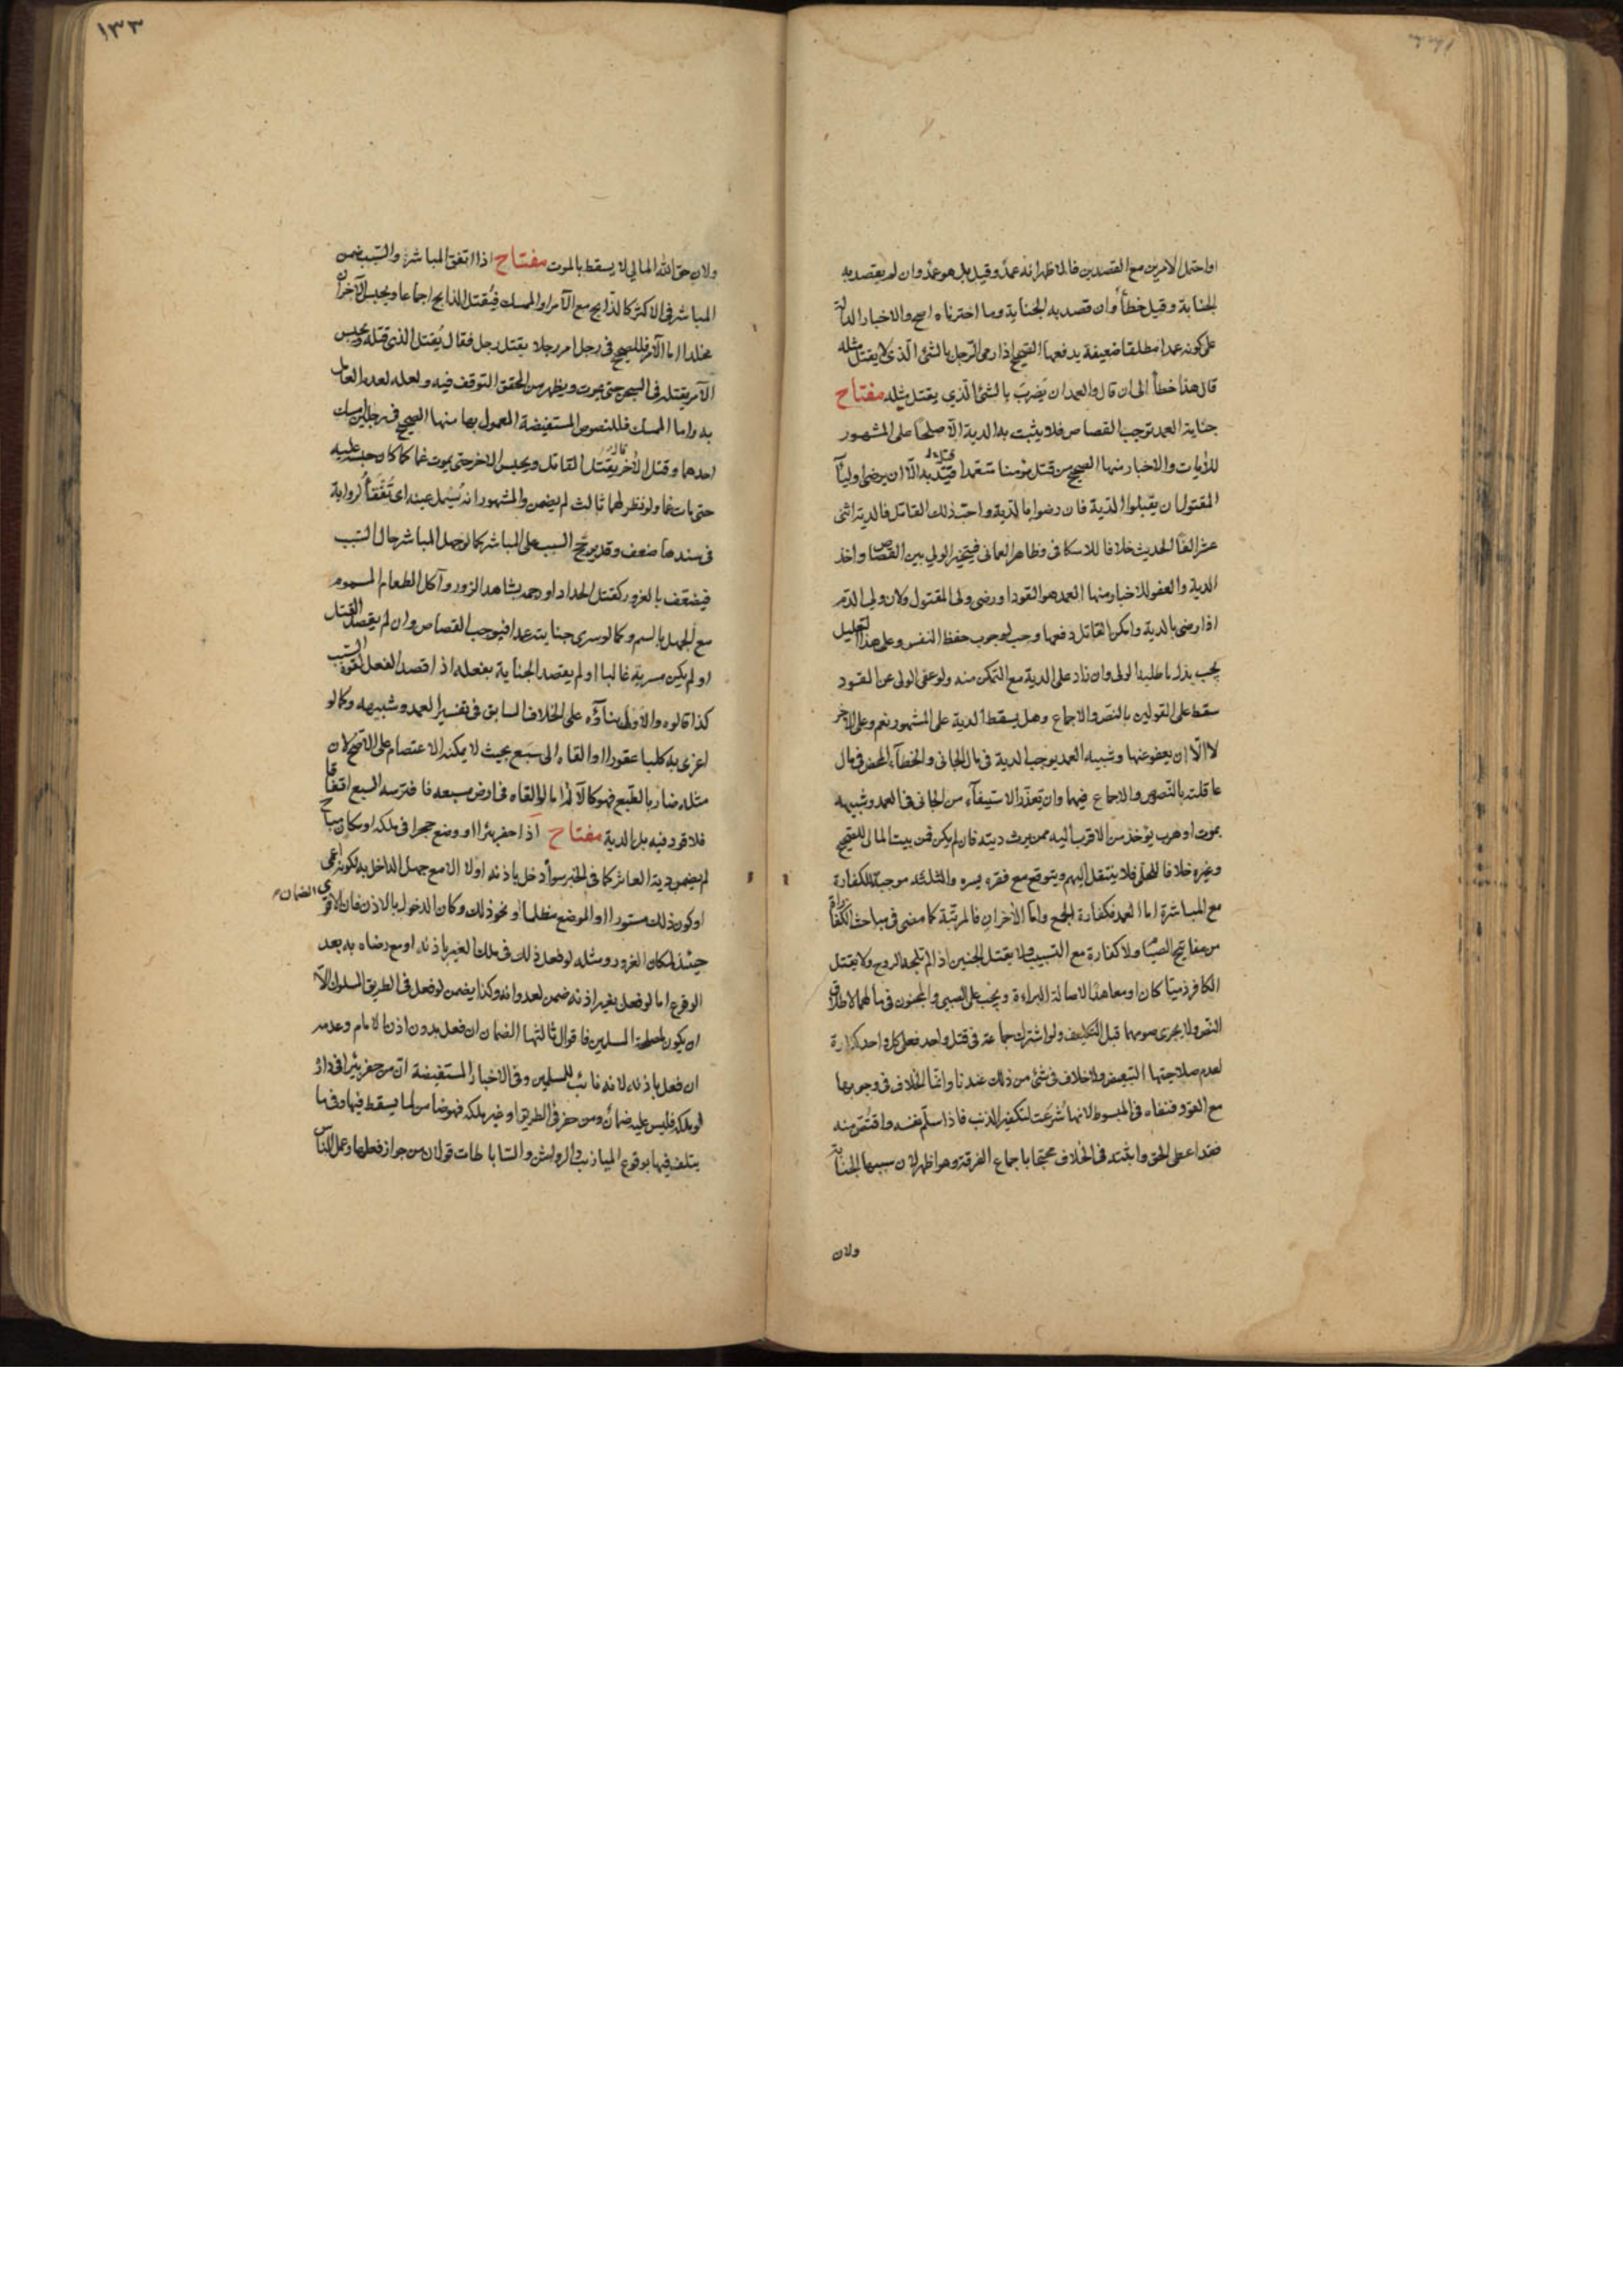 او احتمل الامرين مع القصدين فالاظهر انه عمد وقيل بل هو عمد وان لم يقصد به
الجناية وقيل خطأ وان قصد به الجناية وما اخترناه اصح والاخبار الدالة
على كونه عمدا مطلقا ضعيفة يدفعها الصحيح اذا رمى الرجل بالشئ الذى لا يقتل مثله
قال هذا خطأ الى ان قال والعمد ان يضرب بالشئ الذي يقتل مثله مفتاح
جناية العمد توجب القصاص فلا يثبت به الدية الا صلحا على المشهور
للايات والاخبار منها الصحيح من قتل مؤمنا متعمدا قيد به الا ان يرضى اوليآ
المقتول ان يقبلوا الدية فان رضوا بالدية واحب ذلك القاتل فالدية اثنى
عشر الفا الحديث خلافا للاسكافى وظاهر العمانى فيتخير الولي بين القصاص واخذ
الدية والعفو للاخبار ومنها العمد هو القود او رضى ولى المقتول ولان ولى الدم
اذا رضى بالدية وامكن القاتل دفعها وجب لوجوب حفظ النفس وعلى هذا التعليل
يجب بذل ما طلبه الولى وان زاد على الدية مع التمكن منه ولو عفى الولى عن القود
سقط على القولين بالنص والاجماع وهل يسقط الدية على المشهور نعم وعلى الاخر
لا الا ان يعفو عنها وشبيه العمد يوجب الدية فى مال الجانى والخطآء المحض فى مال
عاقلته بالنصوص والاجماع فيهما وان تعذر الاستيفآء من الجانى فى العمد وشبيهه
بموت او هرب يؤخذ من الاقرب اليه ممن يرث ديته فان لم يكن فمن بيت المال للصحيح
وغيره خلافا للحلى فلا ينتقل اليهم ويتوقع مع فقره يسره والثلثة موجبة للكفارة
مع المباشرة اما العمد فكفارة الجمع واما الأخران فالمرتبة كما مضى فى مباحث الكفارة
من مفاتيح الصيام ولا كفارة مع التسبيب ولا يقتل الجنين اذا لم تلجه الروح ولا بقتل
الكافر ذميا كان او معاهدا لاصالة البراءة ويجب على الصبي والمجنون فى مالهما لاطلاق
النص ولا يجزى صومهما قبل التكليف ولو اشترك جماعة فى قتل واحد فعلى كل واحد كفارة
لعدم صلاحيتها التبعيض ولا خلاف فى شئ من ذلك عندنا وانما الخلاف فى وجوبها
مع القود فنفاه فى المبسوط لانها شرعت لتكفير الذنب فاذا سلم نفسه واقتص منه
فقد اعطى الحق واثبته فى الخلاف محتجا باجماع الفرقة وهو اظهر لان سببها الجناية
ولان
١٣٣
ولان حق الله المالي لا يسقط بالموت مفتاح اذا اتفق المباشر والسبب ضمن
المباشر فى الاكثر كالذابح مع الآمر او الممسك فيقتل الذابح اجماعا ويحبس الآخران
مخلدا اما الآمر فللصحيح فى رجل امر رجلا بقتل رجل فقال يقتل الذى قتله ويحبس
الآمر بقتله فى السجن حتى يموت ويظهر من المحقق التوقف فيه ولعله لعدم العامل
به واما الممسك فللنصوص المستفيضة المعمول بها منها الصحيح فى رجلين امسك
احدهما وقتل الاخر قال يقتل القاتل ويحبس الاخر حتى يموت غما كما كان حبسه عليه
حتى مات غما ولو نظر لهما ثالث لم يضمن والمشهور انه يسمل عينه اى تفقأ لرواية
فى سندها ضعف وقد يرجح السبب على المباشر كما لو جهل المباشر حال السبب
فيضعف بالغرور كقتل الحداد او رجمه بشاهد الزور وآكل الطعام المسموم
مع الجهل بالسم وكما لو سرى جنايته عمدا فيوجب القصاص وان لم يقصد القتل
او لم يكن مسرية غالبا او لم يقصد الجناية بفعله اذا قصد الفعل لقوة السبب
كذا قالوه والاولى بناؤه على الخلاف السابق فى تفسير العمد وشبيهه وكما لو
اغرى به كلبا عقورا او القاه الى سبع بحيث لا يمكنه الاعتصام على الاصح لان
مثله ضار بالطبع فهو كالآلة اما لو القاه فى ارض مسبعه فافترسه السبع اتفاقا
فلا قود فيه بل الدية مفتاح اذا حفر بئرا او وضع حجرا فى ملكه او مكان مباح
لم يضمن دية العاثر كما فى الخبر سوآء دخل باذنه او لا الا مع جهل الداخل به لكونه اعمى
او كون ذلك مستورا او الموضع مظلما او نحو ذلك وكان الدخول بالاذن فان الاقوى الضمان
حينئذ لمكان الغرور ومثله لو فعل ذلك فى ملك الغير باذنه او مع رضاه به بعد
الوقوع اما لو فعل بغير اذنه ضمن لعدوانه وكذا يضمن لو فعل فى الطريق المسلوك الا
ان يكون لمصلحة المسلمين فاقوال ثالثها الضمان ان فعل بدون اذن الامام وعدمه
ان فعل باذنه لانه نائب للمسلمين وفى الاخبار المستفيضة ان من حفر بئرا فى داره
او ملكه فليس عليه ضمان ومن حفر فى الطريق او غير ملكه فهو ضامن لما يسقط فيها وفى ما
يتلف فيها بوقوع الميازيب والرواشن والساباطات قولان من جواز فعلها وعمل الناس